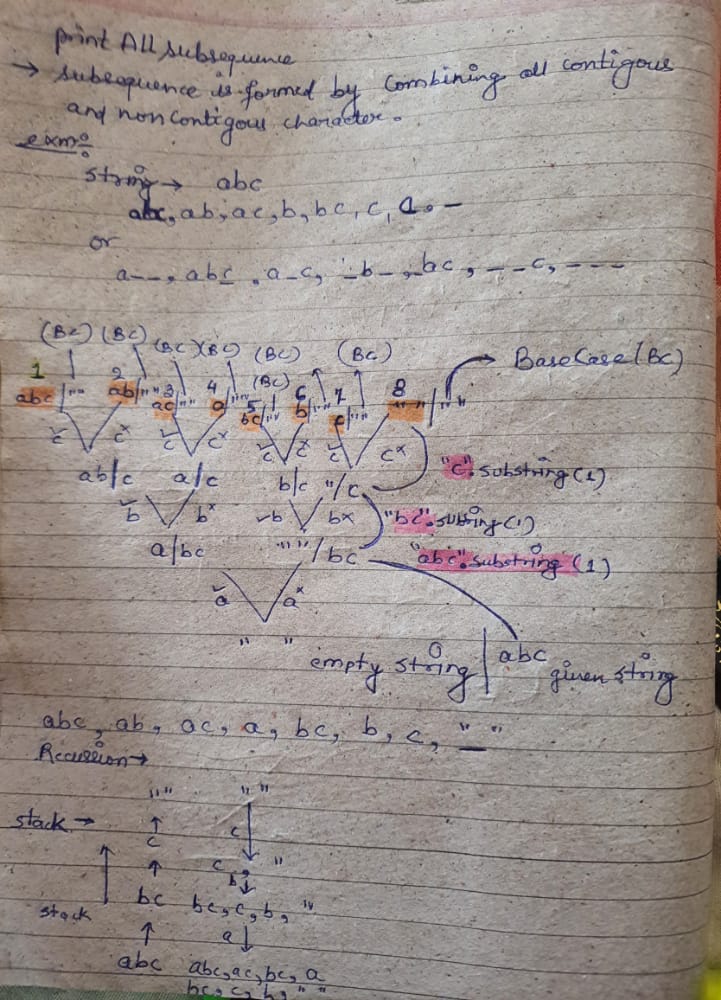 print All subsequence
→ subsequence is formed by combining all contigous
and noncontigous character.
exm:
string → abc
abc, ab, ac, b, bc, c, a. —
or
a--, abc, a_c, _b_, _bc, __c, ___
(BC) (BC) (BC) (BC) (BC) (BC) (BC) → BaseCase (BC)
1 2 3 4 5 6 7 8
abc/"" ab/"" ac/"" a/"" bc/"" b/"" c/"" ""/""
c c× c c× c c× c c×
ab/c a/c b/c "/c "c".substring(1)
b b× b b× "bc".substring(1)
a/bc ""/bc "abc".substring(1)
a a×
" " empty string | abc given string
abc, ab, ac, a, bc, b, c, "_"
Recussion →
"" " "
stack → c c
c, "
b
stack bc bc, c, b, "
a
abc abc, ac, bc, a
bc, c, b, " "